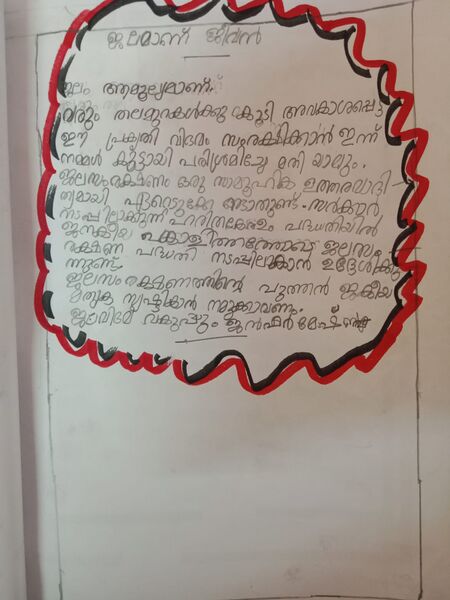 ജലമാണ് ജീവൻ
ജലം ആമൂല്യമാണ്.
വരും തലമുറകൾക്കു കൂടി അവകാശപ്പെട്ട
ഈ പ്രകൃതി വിഭവം സംരക്ഷിക്കാൻ ഇന്ന്
നമ്മൾ കൂട്ടായി പരിശ്രമിച്ചേ മതി യാവും.
ജലസംരക്ഷണം ഒരു സാമൂഹിക ഉത്തരവാദി-
ത്വമായി ഏറ്റെടുക്കേ ണ്ടതുണ്ട്. സർക്കാർ
നടപ്പിലാക്കുന്ന ഹരിതകേരളം പദ്ധതിയിൽ
ജനകീയ പങ്കാളിത്തത്തോടെ ജലസം
രക്ഷണ പദ്ധതി നടപ്പിലാക്കാൻ ഉദ്ദേശിക്കു
ന്നുണ്ട്.
ജലസംരക്ഷണത്തിന്റെ പുത്തൻ ജനകീയ
മാതൃക സൃഷ്ടിക്കാൻ നമുക്കാവണം.
ജലവിഭവ വകുപ്പും